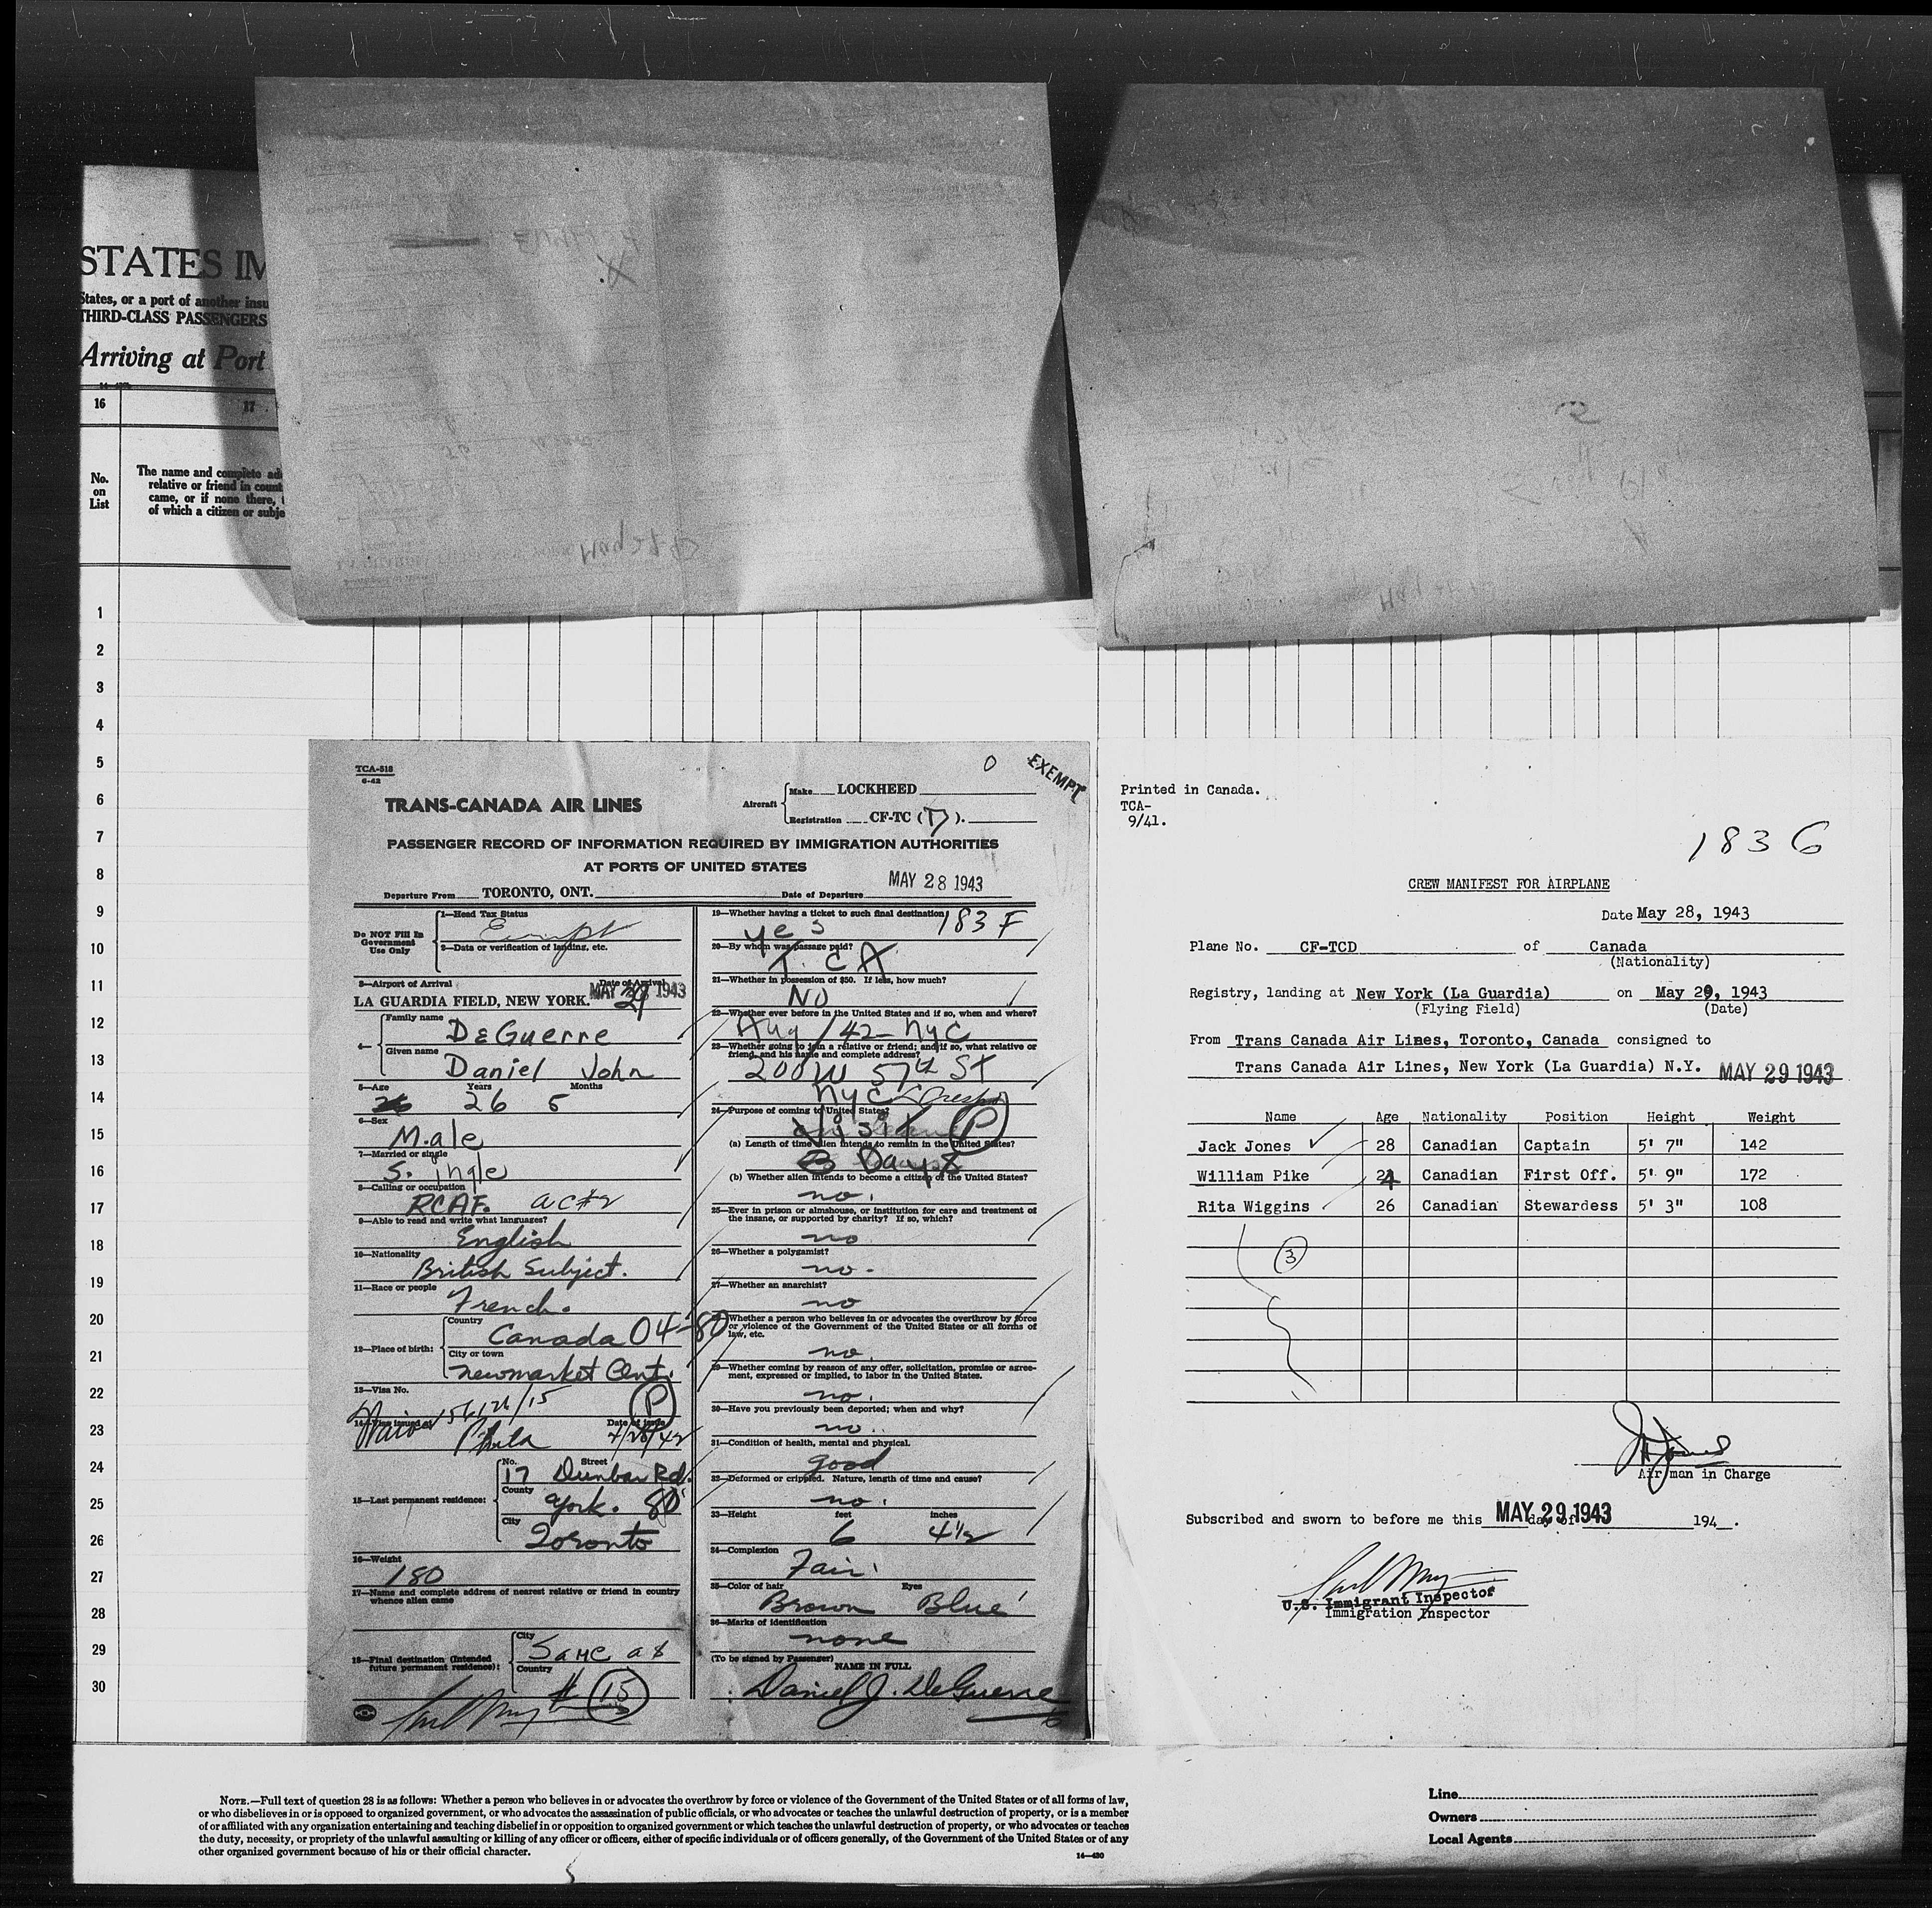 STATES IM
States, or a port of another insu
THIRD-CLASS PASSENGERS
Arriving at Port
16 17
No. on List
The name and complete ad
relative or friend in count
came, or if none there,
of which a citizen or subje
1
2
3
4
5
6
7
8
9
10
11
12
13
14
15
16
17
18
19
20
21
22
23
24
25
26
27
28
29
30
TCA-518
6-42
EXEMPT
TRANS-CANADA AIR LINES
Aircraft
Make LOCKHEED
Registration CF-TC (D).
PASSENGER RECORD OF INFORMATION REQUIRED BY IMMIGRATION AUTHORITIES
AT PORTS OF UNITED STATES
Departure From TORONTO, ONT. Date of Departure MAY 28 1943
Do NOT Fill In
Government
Use Only
1—Head Tax Status
Exempt
2—Data or verification of landing, etc.
3—Airport of Arrival Date of Arrival
LA GUARDIA FIELD, NEW YORK. MAY 29 1943
4—
Family name
DeGuerre
Given name
Daniel John
5—Age Years Months
26 5
6—Sex
Male
7—Married or single
Single
8—Calling or occupation
RCAF. AC#2
9—Able to read and write what languages?
English
10—Nationality
British Subject.
11—Race or people
French.
12—Place of birth:
Country
Canada 04-80
City or town
Newmarket Ont.
13—Visa No.
Waiver 56126/15
P
14—Visa issued at Date of issue
Phila 7/28/42
15—Last permanent residence:
No. Street
17 Dunbar Rd.
County
York. 80
City
Toronto
16—Weight
180
17—Name and complete address of nearest relative or friend in country
whence alien came
18—Final destination (Intended
future permanent residence):
City
Same as
Country
# 15
19—Whether having a ticket to such final destination
yes 183 F
20—By whom was passage paid?
T. C A
21—Whether in possession of $50. If less, how much?
No
22—Whether ever before in the United States and if so, when and where?
Aug/42 - NYC
23—Whether going to join a relative or friend; and if so, what relative or
friend, and his name and complete address?
200 W 57th St
NYC
24—Purpose of coming to United States?
Visit P
(a) Length of time alien intends to remain in the United States?
Days
(b) Whether alien intends to become a citizen of the United States?
no.
25—Ever in prison or almshouse, or institution for care and treatment of
the insane, or supported by charity? If so, which?
no
26—Whether a polygamist?
no.
27—Whether an anarchist?
no
28—Whether a person who believes in or advocates the overthrow by force
or violence of the Government of the United States or all forms of
law, etc.
no.
29—Whether coming by reason of any offer, solicitation, promise or agree-
ment, expressed or implied, to labor in the United States.
no.
30—Have you previously been deported; when and why?
no..
31—Condition of health, mental and physical.
good
32—Deformed or crippled. Nature, length of time and cause?
no.
33—Height feet inches
6 4½
34—Complexion
Fair
35—Color of hair Eyes
Brown Blue
36—Marks of identification
none
(To be signed by Passenger)
NAME IN FULL
Daniel J. DeGuerre
Printed in Canada.
TCA-
9/41.
183 G
CREW MANIFEST FOR AIRPLANE
Date May 28, 1943
Plane No. CF-TCD of Canada
(Nationality)
Registry, landing at New York (La Guardia) on May 29, 1943
(Flying Field) (Date)
From Trans Canada Air Lines, Toronto, Canada consigned to
Trans Canada Air Lines, New York (La Guardia) N.Y. MAY 29 1943
Name Age Nationality Position Height Weight
Jack Jones 28 Canadian Captain 5' 7" 142
William Pike 24 Canadian First Off. 5' 9" 172
Rita Wiggins 26 Canadian Stewardess 5' 3" 108
3
Airman in Charge
Subscribed and sworn to before me this MAY 29 1943 day of 194 .
U.S. Immigrant Inspector
Immigration Inspector
NOTE.—Full text of question 28 is as follows: Whether a person who believes in or advocates the overthrow by force or violence of the Government of the United States or of all forms of law,
or who disbelieves in or is opposed to organized government, or who advocates the assassination of public officials, or who advocates or teaches the unlawful destruction of property, or is a member
of or affiliated with any organization entertaining and teaching disbelief in or opposition to organized government or which teaches the unlawful destruction of property, or who advocates or teaches
the duty, necessity, or propriety of the unlawful assaulting or killing of any officer or officers, either of specific individuals or of officers generally, of the Government of the United States or of any
other organized government because of his or their official character.
14—430
Line
Owners
Local Agents